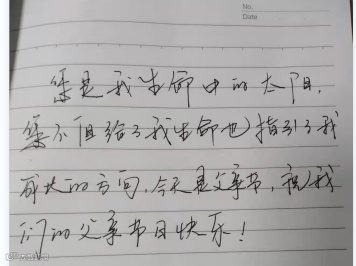 No.
Date
您是我生命中的太阳,
您不但给了我生命也指引了我
成长的方向,今天是父亲节,祝我
们的父亲节日快乐!